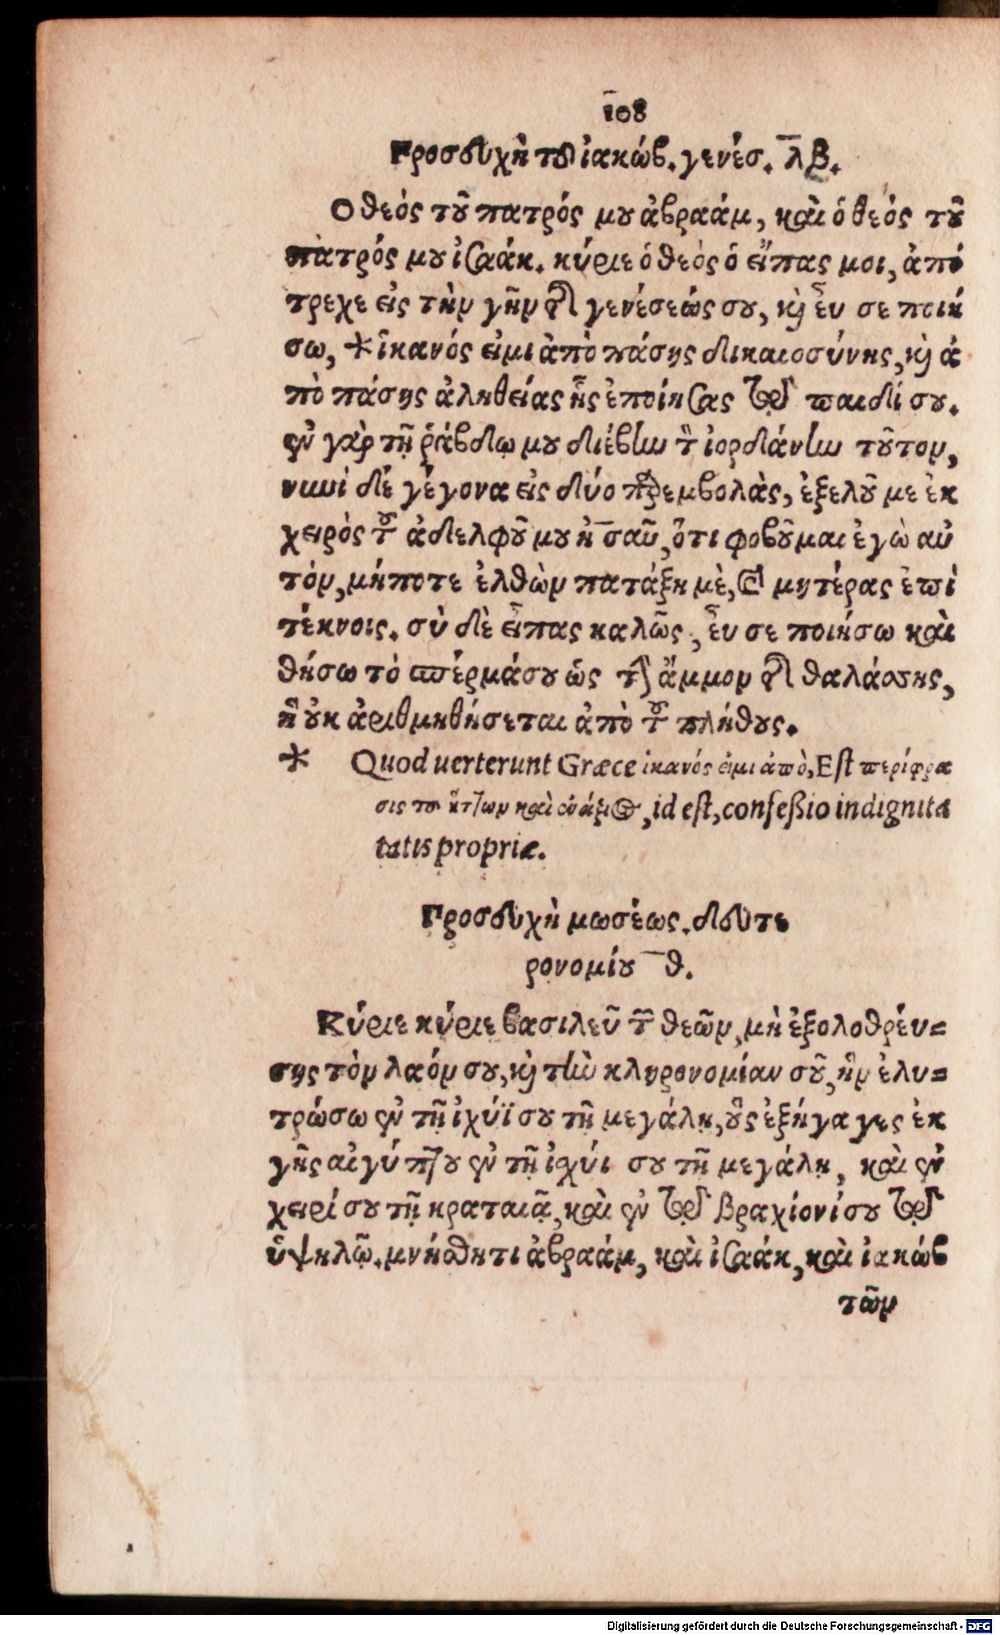 108
Προσευχὴ τοῦ ἰακώβ. γενέσ. λβ.
Ο θεός τοῦ πατρός μου ἀβραάμ, καὶ ὁ θεός τοῦ
πατρός μου ἰσαάκ. κύριε ὁ θεὸς ὁ εἴπας μοι, ἀπό
τρεχε εἰς τὴν γῆν τῆς γενέσεώς σου, καὶ εὖ σε ποιή
σω, * ἱκανός εἰμι ἀπὸ πάσης δικαιοσύνης, καὶ ἀ
πὸ πάσης ἀληθείας ἧς ἐποίησας τῷ παιδί σου.
ἐν γὰρ τῇ ῥάβδῳ μου διέβην τὸν ἰορδάνην τοῦτον,
νυνὶ δέ γέγονα εἰς δύο παρεμβολὰς, ἐξελοῦ με ἐκ
χειρὸς τοῦ ἀδελφοῦ μου ἠσαῦ, ὅτι φοβοῦμαι ἐγὼ αὐ
τόν, μήποτε ἐλθὼν πατάξῃ μὲ, καὶ μητέρας ἐπὶ
τέκνοις. σὺ δὲ εἶπας καλῶς, εὖ σε ποιήσω καὶ
θήσω τὸ σπέρμά σου ὡς τὴν ἄμμον τῆς θαλάσσης,
ἣ οὐκ ἀριθμηθήσεται ἀπὸ τοῦ πλήθους.
* Quod uerterunt Græce ἱκανός εἰμι ἀπὸ, Est περίφρα
σις τοῦ ἥττων καὶ οὐ ἄξιος, id est, confeßio indignita
tatis propriæ.
Προσευχὴ μωσέως. δευτε
ρονομίου θ.
Κύριε κύριε βασιλεῦ τῶν θεῶν, μὴ ἐξολοθρεύ=
σῃς τὸν λαόν σου, καὶ τὴν κληρονομίαν σοῦ, ἣν ἐλυ=
τρώσω ἐν τῇ ἰχύϊ σου τῇ μεγάλῃ, οὓς ἐξήγαγες ἐκ
γῆς αἰγύπτου ἐν τῇ ἰχύι σου τῇ μεγάλῃ, καὶ ἐν
χειρί σου τῇ κραταιᾷ, καὶ ἐν τῷ βραχίονί σου τῷ
ὑψηλῷ. μνήσθητι ἀβραάμ, καὶ ἰσαάκ, καὶ ἰακώβ
τῶν
Digitalisierung gefördert durch die Deutsche Forschungsgemeinschaft - DFG